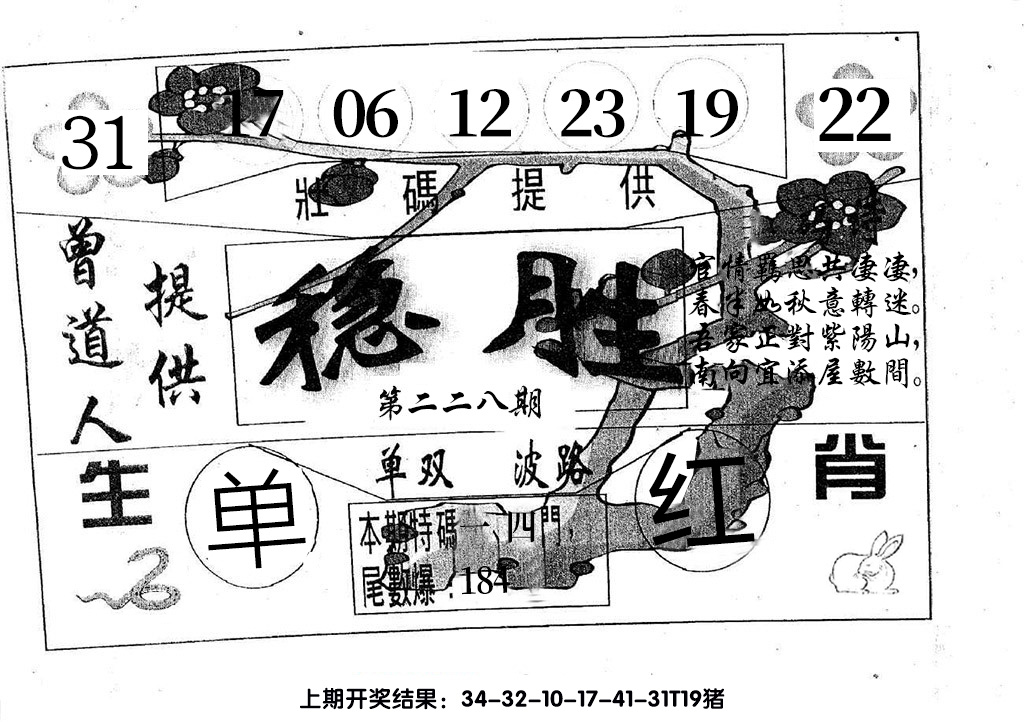 31 17 06 12 23 19 22
壯碼提供
曾道人
提供
稳胜
第二二八期
官情羈思共淒淒，
春半如秋意轉迷。
吾家正對紫陽山，
南向宜添屋數間。
单双 波路
生肖
单
红
本期特碼一、四門，
尾數爆：184
上期开奖结果：34-32-10-17-41-31T19猪